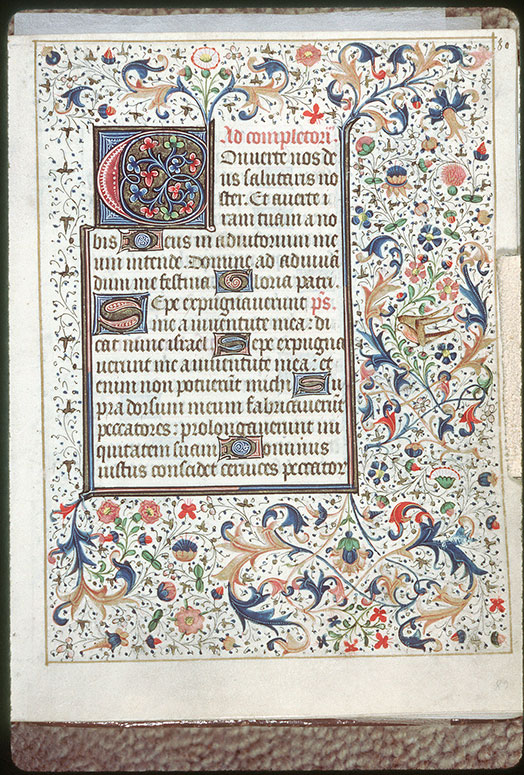 Ad completori.
Converte nos de
us salutaris no
ster. Et averte i
ram tuam a no
bis Deus in adiutorium me
um intende. Domine ad adiuvā
dum me festina Gloria patri.
Sepe expugnaverunt ps.
me a iuventute mea: di
cat nunc israel Sepe expugna
verunt me a iuventute mea: et
enim non potuerūt michi Su
pra dorsum meum fabricaverūt
peccatores: prolongaverunt ini
quitatem suam Dominus
iustus concidet cervices peccator